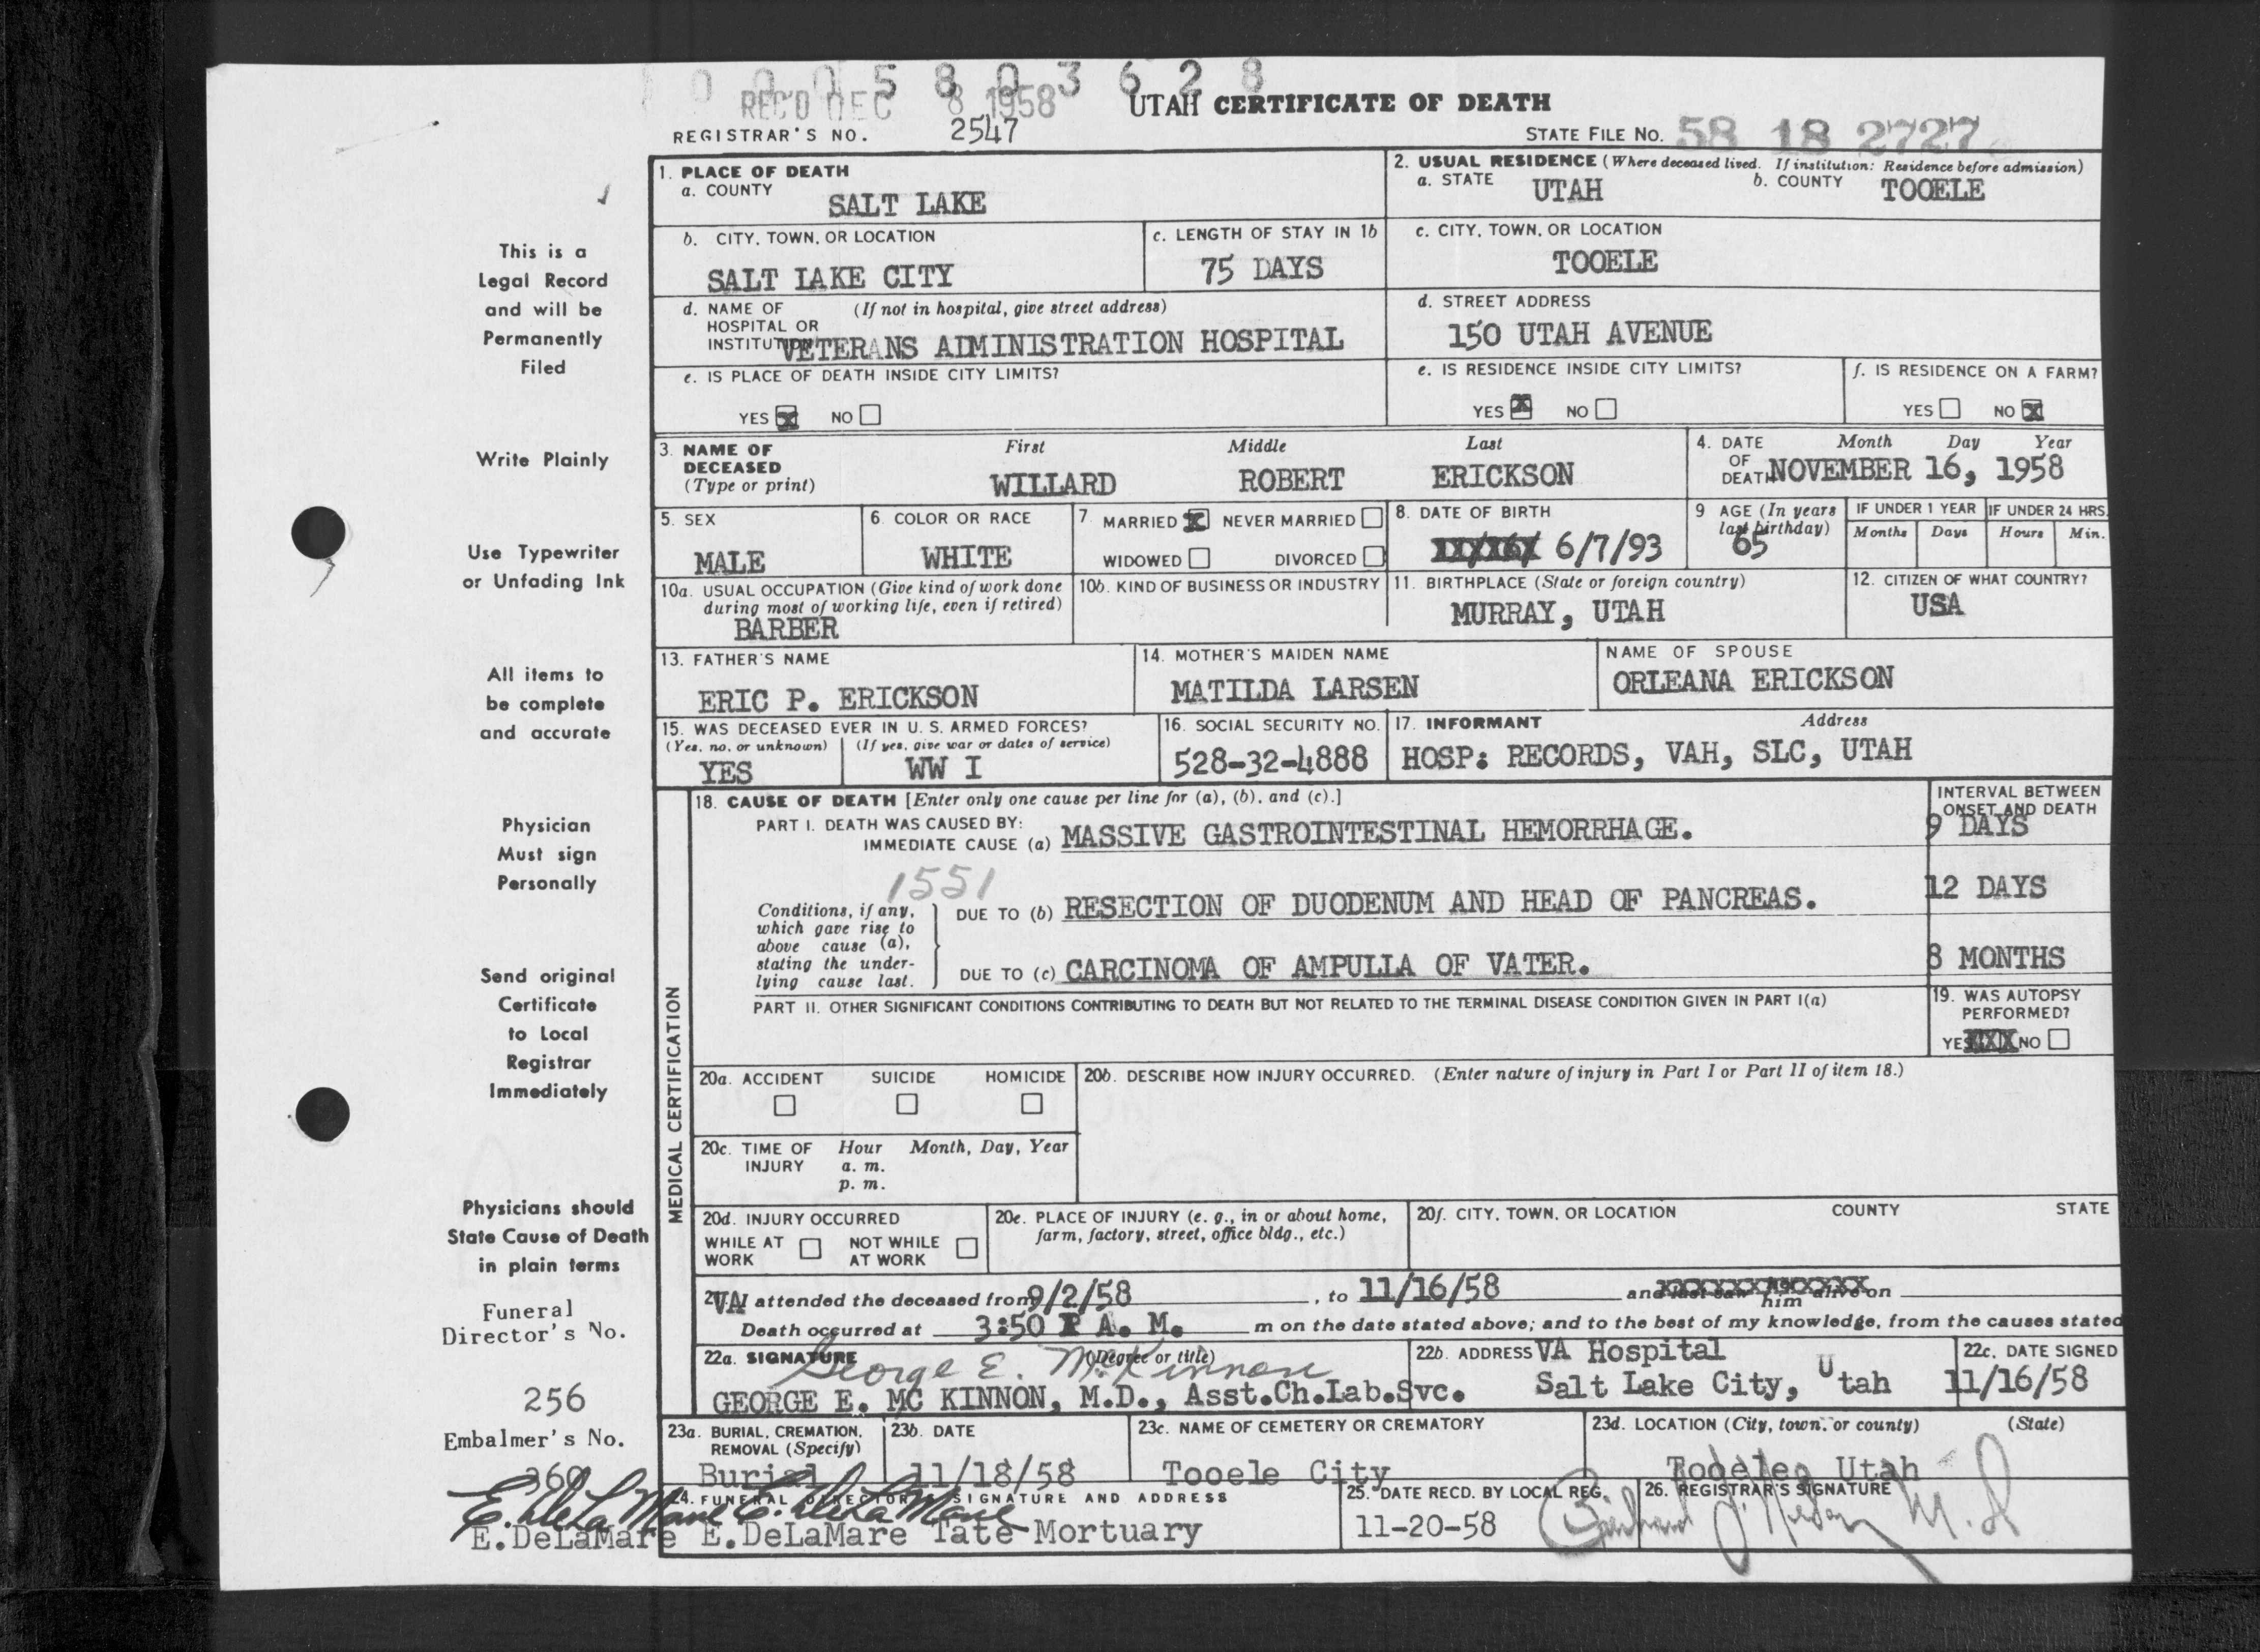 0 0 0 5 8 0 3 6 2 8
REC'D DEC 8 1958
UTAH CERTIFICATE OF DEATH
REGISTRAR'S NO. 2547
STATE FILE NO. 58 18 2727
1. PLACE OF DEATH
a. COUNTY
SALT LAKE
2. USUAL RESIDENCE (Where deceased lived. If institution: Residence before admission)
a. STATE UTAH b. COUNTY TOOELE
b. CITY, TOWN, OR LOCATION
SALT LAKE CITY
c. LENGTH OF STAY IN 1b
75 DAYS
c. CITY, TOWN, OR LOCATION
TOOELE
d. NAME OF (If not in hospital, give street address)
HOSPITAL OR
INSTITUTION VETERANS ADMINISTRATION HOSPITAL
d. STREET ADDRESS
150 UTAH AVENUE
e. IS PLACE OF DEATH INSIDE CITY LIMITS?
YES X NO
e. IS RESIDENCE INSIDE CITY LIMITS?
YES X NO
f. IS RESIDENCE ON A FARM?
YES NO X
3. NAME OF
DECEASED
(Type or print)
First Middle Last
WILLARD ROBERT ERICKSON
4. DATE Month Day Year
OF
DEATH NOVEMBER 16, 1958
5. SEX
MALE
6. COLOR OR RACE
WHITE
7. MARRIED X NEVER MARRIED
WIDOWED DIVORCED
8. DATE OF BIRTH
6/7/93
9 AGE (In years
last birthday)
65
IF UNDER 1 YEAR
Months Days
IF UNDER 24 HRS.
Hours Min.
10a. USUAL OCCUPATION (Give kind of work done
during most of working life, even if retired)
BARBER
10b. KIND OF BUSINESS OR INDUSTRY
11. BIRTHPLACE (State or foreign country)
MURRAY, UTAH
12. CITIZEN OF WHAT COUNTRY?
USA
13. FATHER'S NAME
ERIC P. ERICKSON
14. MOTHER'S MAIDEN NAME
MATILDA LARSEN
NAME OF SPOUSE
ORLEANA ERICKSON
15. WAS DECEASED EVER IN U. S. ARMED FORCES?
(Yes, no, or unknown) (If yes, give war or dates of service)
YES WW I
16. SOCIAL SECURITY NO.
528-32-4888
17. INFORMANT Address
HOSP: RECORDS, VAH, SLC, UTAH
MEDICAL CERTIFICATION
18. CAUSE OF DEATH [Enter only one cause per line for (a), (b), and (c).]
INTERVAL BETWEEN
ONSET AND DEATH
PART I. DEATH WAS CAUSED BY:
IMMEDIATE CAUSE (a) MASSIVE GASTROINTESTINAL HEMORRHAGE. 9 DAYS
1551
Conditions, if any,
which gave rise to
above cause (a),
stating the under-
lying cause last.
DUE TO (b) RESECTION OF DUODENUM AND HEAD OF PANCREAS. 12 DAYS
DUE TO (c) CARCINOMA OF AMPULLA OF VATER. 8 MONTHS
PART II. OTHER SIGNIFICANT CONDITIONS CONTRIBUTING TO DEATH BUT NOT RELATED TO THE TERMINAL DISEASE CONDITION GIVEN IN PART I(a)
19. WAS AUTOPSY
PERFORMED?
YES XXX NO
20a. ACCIDENT SUICIDE HOMICIDE
20b. DESCRIBE HOW INJURY OCCURRED. (Enter nature of injury in Part I or Part II of item 18.)
20c. TIME OF Hour Month, Day, Year
INJURY a. m.
p. m.
20d. INJURY OCCURRED
WHILE AT NOT WHILE
WORK AT WORK
20e. PLACE OF INJURY (e. g., in or about home,
farm, factory, street, office bldg., etc.)
20f. CITY, TOWN, OR LOCATION COUNTY STATE
21. VA I attended the deceased from 9/2/58, to 11/16/58 and last saw him alive on
Death occurred at 3:50 P A. M. m on the date stated above; and to the best of my knowledge, from the causes stated
22a. SIGNATURE (Degree or title)
George E. McKinnon
GEORGE E. MC KINNON, M.D., Asst.Ch.Lab.Svc.
22b. ADDRESS VA Hospital
Salt Lake City, Utah
22c. DATE SIGNED
11/16/58
23a. BURIAL, CREMATION,
REMOVAL (Specify)
Burial
23b. DATE
11/18/58
23c. NAME OF CEMETERY OR CREMATORY
Tooele City
23d. LOCATION (City, town, or county) (State)
Tooele, Utah
24. FUNERAL DIRECTOR'S SIGNATURE AND ADDRESS
E. DeLaMare
E.DeLaMare Tate Mortuary
25. DATE RECD. BY LOCAL REG.
11-20-58
26. REGISTRAR'S SIGNATURE
M.D.
This is a
Legal Record
and will be
Permanently
Filed
Write Plainly
Use Typewriter
or Unfading Ink
All items to
be complete
and accurate
Physician
Must sign
Personally
Send original
Certificate
to Local
Registrar
Immediately
Physicians should
State Cause of Death
in plain terms
Funeral
Director's No.
256
Embalmer's No.
360
E. DeLaMare
E.DeLaMare